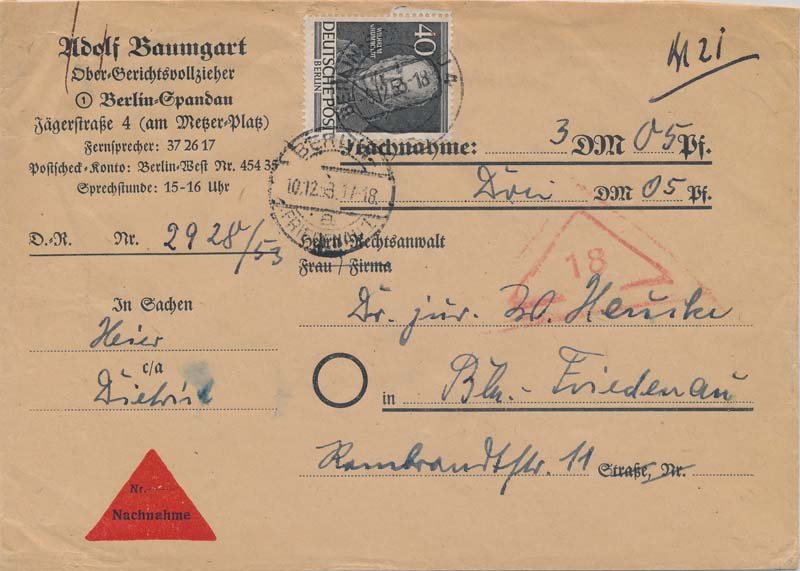 Adolf Baumgart
Ober-Gerichtsvollzieher
① Berlin-Spandau
Jägerstraße 4 (am Metzer-Platz)
Fernsprecher: 37 26 17
Postscheck-Konto: Berlin-West Nr. 454 35
Sprechstunde: 15-16 Uhr
D.-R. Nr. 2928/53
In Sachen
Heier
c/a
Nr.
Nachnahme
40
DEUTSCHE POST
BERLIN
BERLIN
10.12.53.17-18
a
FRIEDENAU 1
Nachnahme: 3 DM 05 Pf.
Drei DM 05 Pf.
Herrn Rechtsanwalt
Frau / Firma
18
Dr. jur. W.
in Bln.-Friedenau
Rembrandtstr. 11 Straße, Nr.